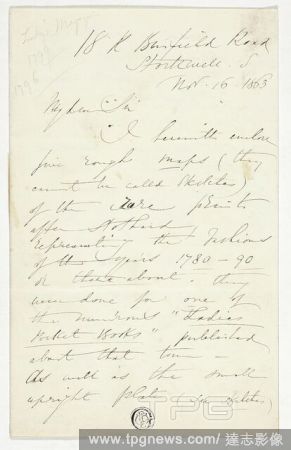 18 R Burfield Road
Stockwell. S
Nov. 16 1863
My dear Sir
I herewith enclose
five rough maps (they
cannot be called sketches)
of the rare prints
after Stothard
representing the fashions
of the years 1780 – 90
or thereabout. they
were done for one of
the numerous "Ladies
Pocket Books" published
about that time –
As well as the small
upright plate
TPG
www.tpgnews.com / 達志影像